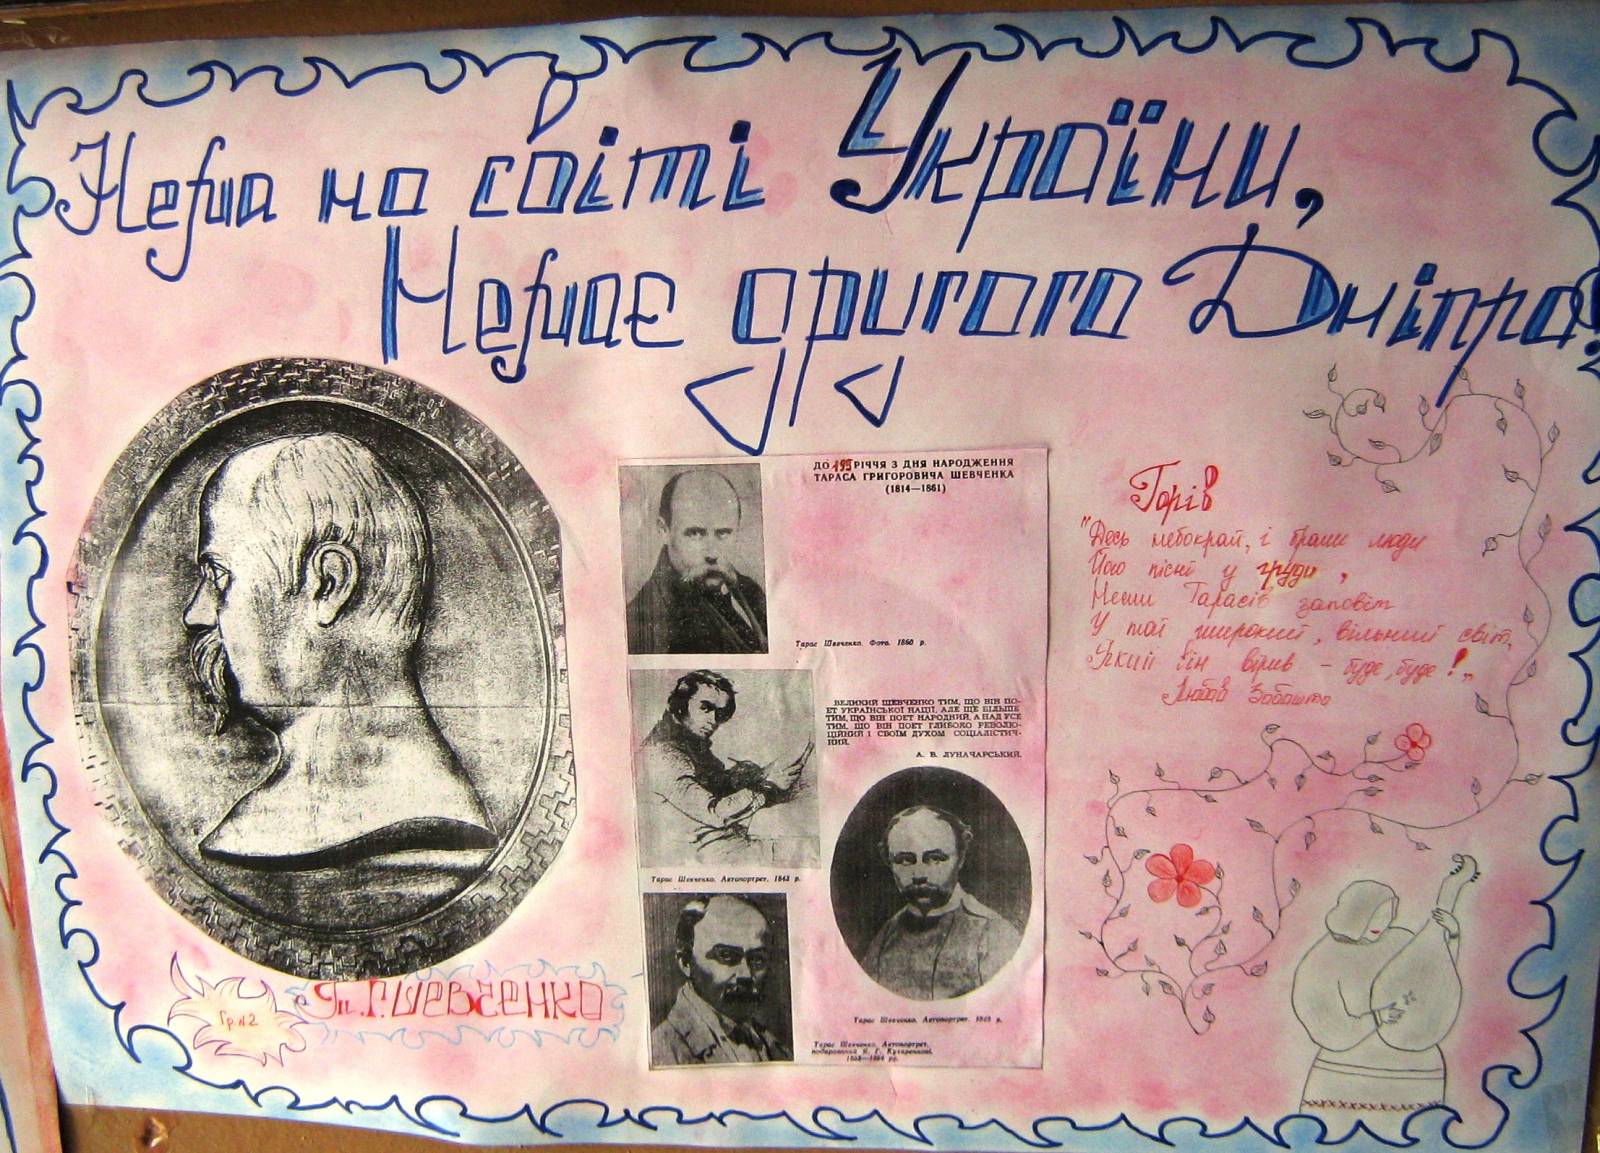 Нема на світі України,
Немає другого Дніпра,
ДО 195 РІЧЧЯ З ДНЯ НАРОДЖЕННЯ
ТАРАСА ГРИГОРОВИЧА ШЕВЧЕНКА
(1814—1861)
Тарас Шевченко. Фото. 1860 р.
ВЕЛИКИЙ ШЕВЧЕНКО ТИМ, ЩО ВІН ПО-
ЕТ УКРАЇНСЬКОЇ НАЦІЇ, АЛЕ ЩЕ БІЛЬШЕ
ТИМ, ЩО ВІН ПОЕТ НАРОДНИЙ, А НАД УСЕ
ТИМ, ЩО ВІН ПОЕТ ГЛИБОКО РЕВОЛЮ-
ЦІЙНИЙ І СВОЇМ ДУХОМ СОЦІАЛІСТИЧ-
НИЙ.
А. В. ЛУНАЧАРСЬКИЙ.
Тарас Шевченко. Автопортрет. 1843 р.
Тарас Шевченко. Автопортрет. 1845 р.
Тарас Шевченко. Автопортрет,
подарований Я. Г. Кухаренкові.
Горів
"Десь небокрай, і брали люди
Його пісні у груди,
Несли Тарасів заповіт
У той широкий, вільний світ,
Який він вірив – буде, буде!"
Любов Забашта
Гр.N2
Т.Г.ШЕВЧЕНКО